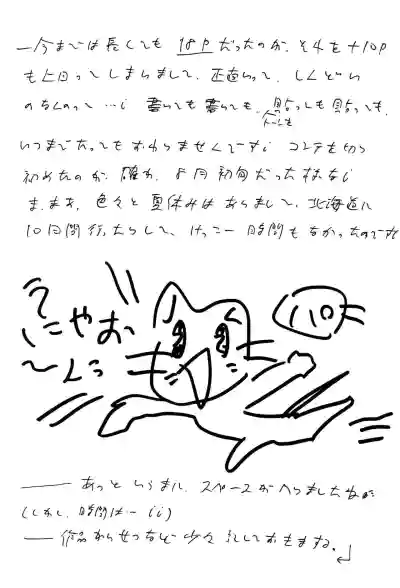 一今までは長くても 18Pだったのが、それを+10P
も上回ってしまいまして、正直いって、しんどい
のなんのって…; 書いても書いても、貼っても貼っても、
トーンを
いつまでたってもおわりませんでした; コンテを切り
初めたのが、確か、8月初旬だった様な;
ま、まぁ、色々と夏休みはありまして、北海道に
10日間行ったりして、けっこー時間もなかったのですが
にゃお
〜ん
あっというまに、スペースがへりましたねぇ
(しかし、時間は… ;;)